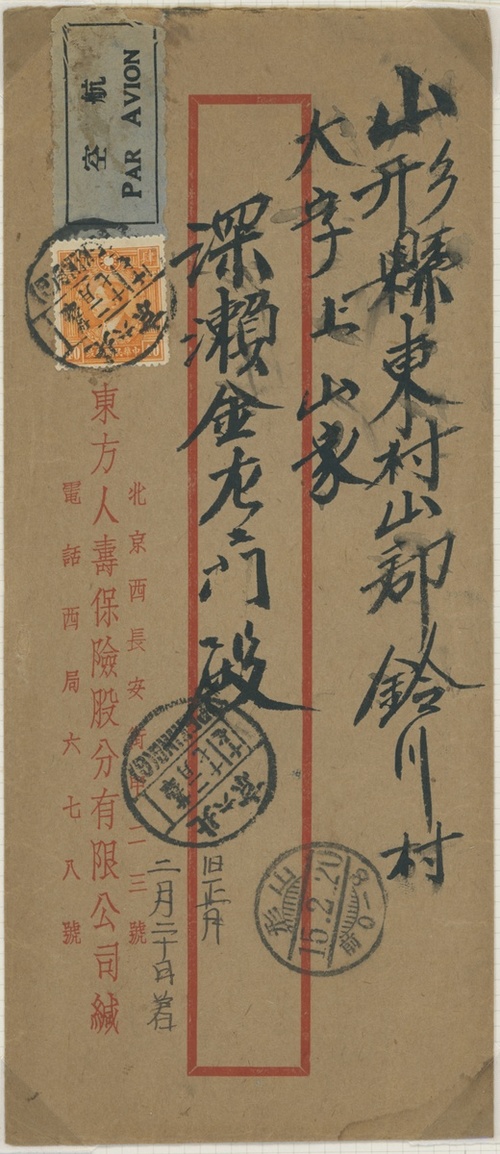 山形縣東村山郡鈴川村
大字上山家
深瀬金左衛門殿
航空
PAR AVION
北京西長安街甲一三號
東方人壽保險股分有限公司緘
電話西局六七八號
旧正月
二月二十日着
山形
15.2.20
前